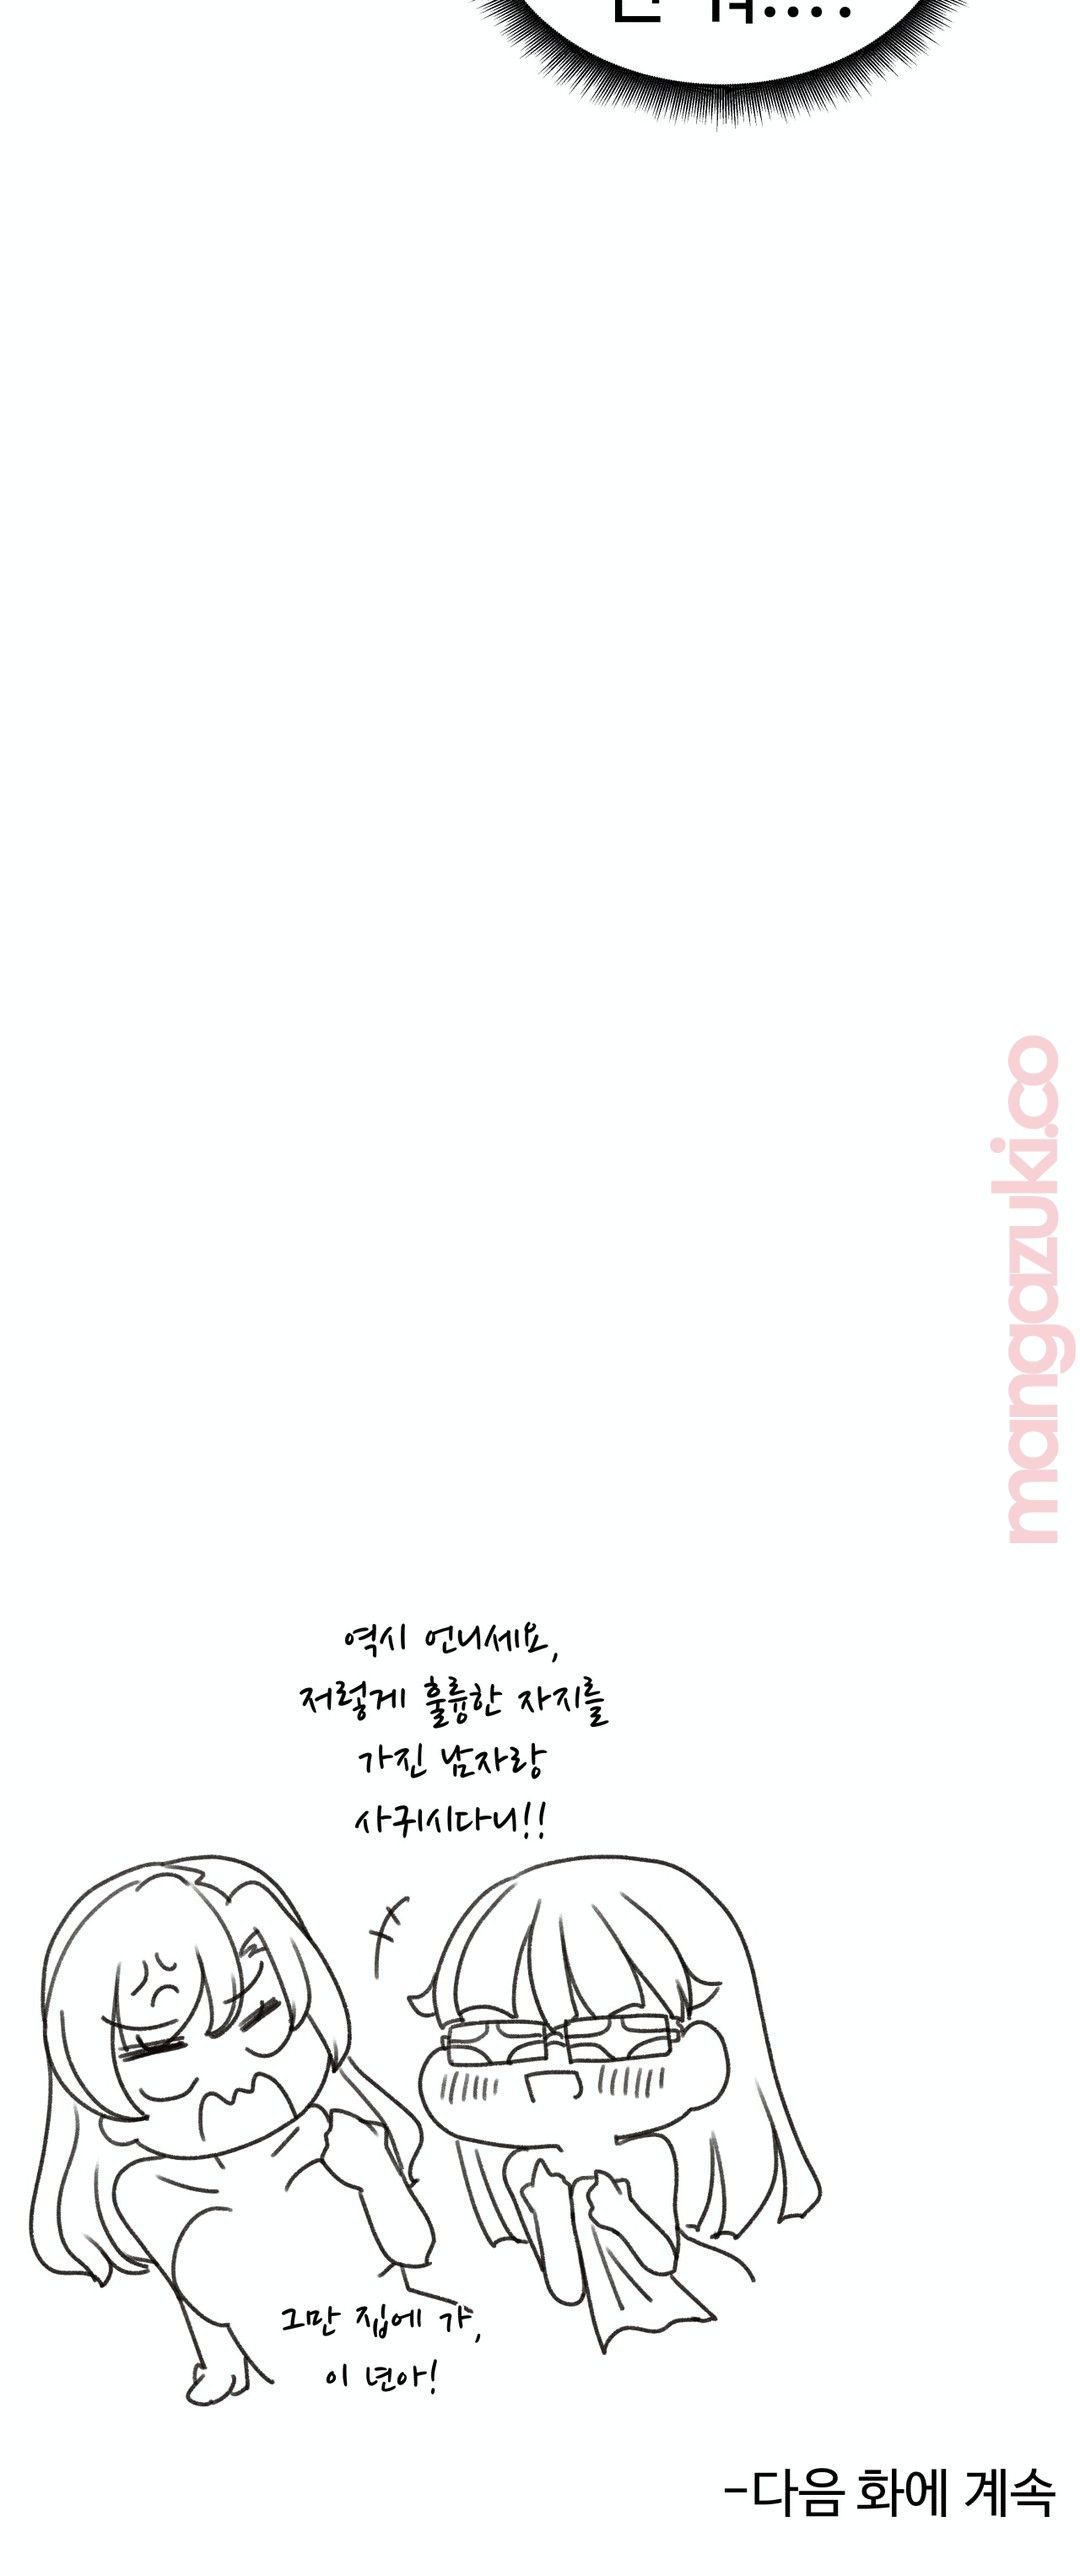 역시 언니세요,
저렇게 훌륭한 자지를
가진 남자랑
사귀시다니!!
그만 집에 가,
이 년아!
-다음 화에 계속
mangazuki.co